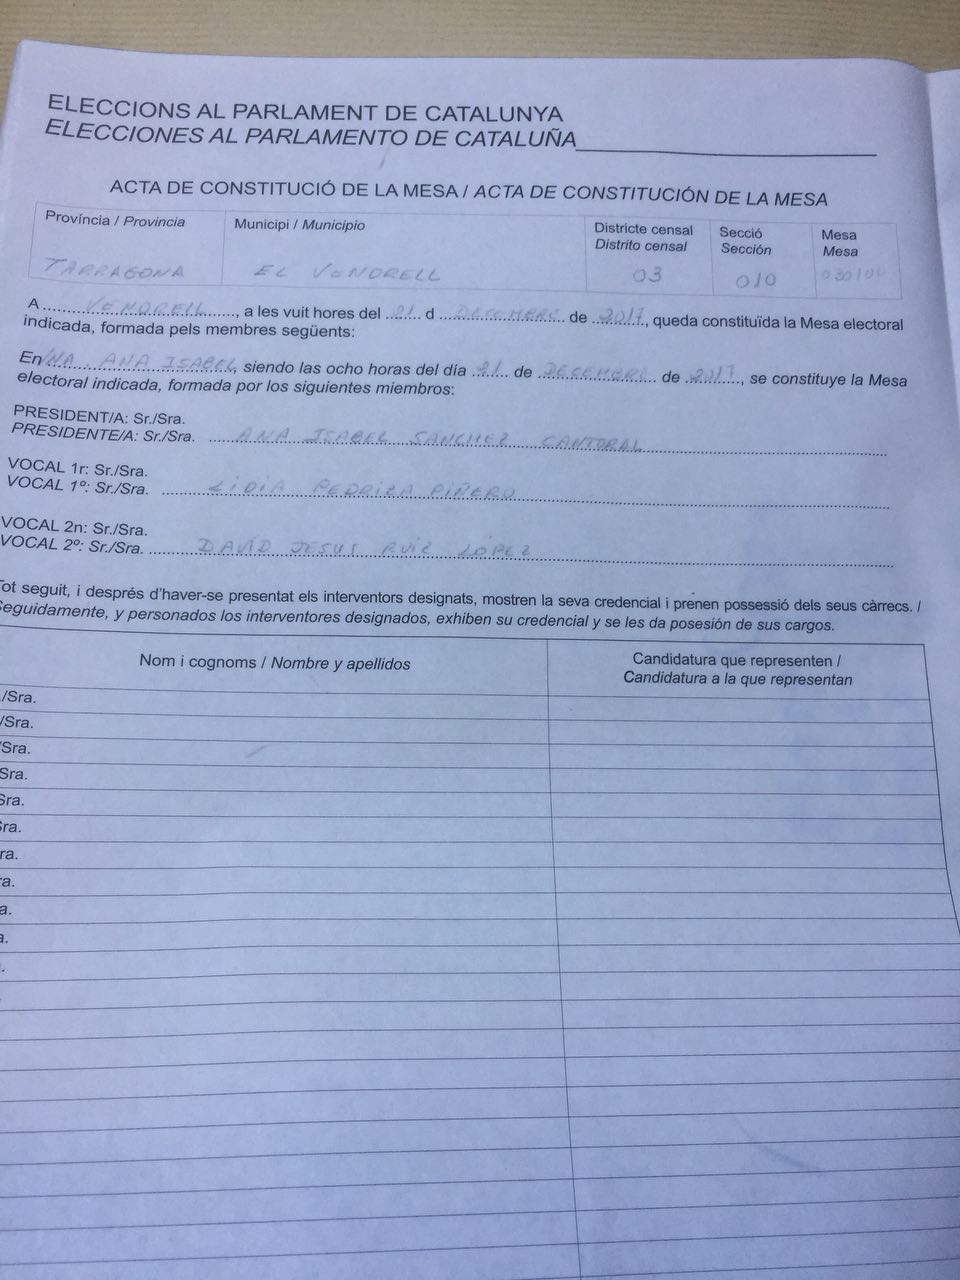 ELECCIONS AL PARLAMENT DE CATALUNYA
ELECCIONES AL PARLAMENTO DE CATALUÑA
ACTA DE CONSTITUCIÓ DE LA MESA / ACTA DE CONSTITUCIÓN DE LA MESA
Província / Provincia
TARRAGONA
Municipi / Municipio
EL VENDRELL
Districte censal
Distrito censal
03
Secció
Sección
010
Mesa
Mesa
A VENDRELL, a les vuit hores del 21 d DECEMBRE de 2017, queda constituïda la Mesa electoral
indicada, formada pels membres següents:
En/NA ANA ISABEL, siendo las ocho horas del día 21 de DECEMBRE de 2017, se constituye la Mesa
electoral indicada, formada por los siguientes miembros:
PRESIDENT/A: Sr./Sra.
PRESIDENTE/A: Sr./Sra. ANA ISABEL SANCHEZ CANTORAL
VOCAL 1r: Sr./Sra.
VOCAL 1º: Sr./Sra. LIDIA PEDRIZA PIÑERO
VOCAL 2n: Sr./Sra.
VOCAL 2º: Sr./Sra. DAVID JESUS RUIZ LOPEZ
Tot seguit, i després d'haver-se presentat els interventors designats, mostren la seva credencial i prenen possessió dels seus càrrecs. /
Seguidamente, y personados los interventores designados, exhiben su credencial y se les da posesión de sus cargos.
Nom i cognoms / Nombre y apellidos
Candidatura que representen /
Candidatura a la que representan
/Sra.
/Sra.
/Sra.
Sra.
Sra.
Sra.
ra.
ra.
a.
a.